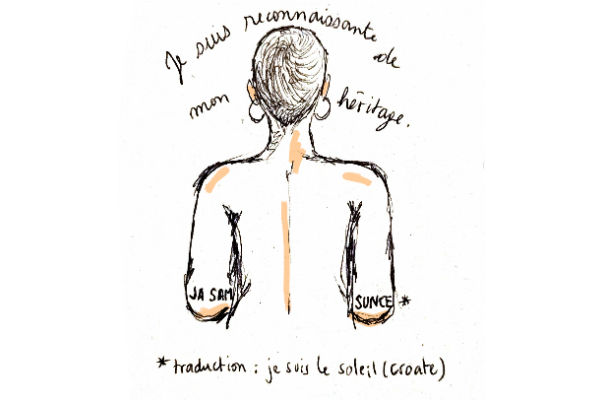 Je suis reconnaissante de
mon héritage.
JA SAM SUNCE *
* traduction : je suis le soleil (croate)